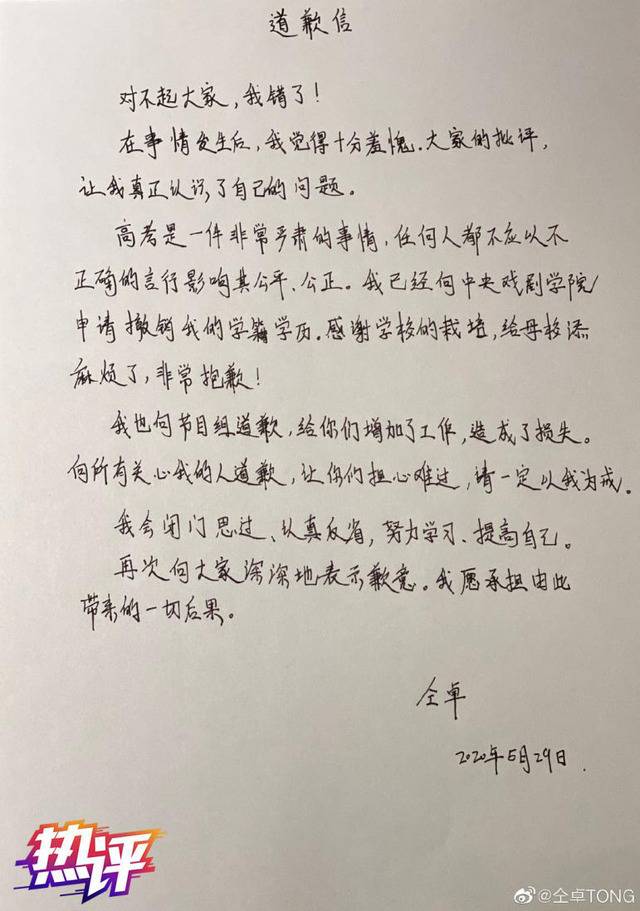 道歉信
对不起大家，我错了！
在事情发生后，我觉得十分羞愧。大家的批评，
让我真正认识了自己的问题。
高考是一件非常严肃的事情，任何人都不应以不
正确的言行影响其公平、公正。我已经向中央戏剧学院
申请撤销我的学籍学历。感谢学校的栽培，给母校添
麻烦了，非常抱歉！
我也向节目组道歉，给你们增加了工作，造成了损失。
向所有关心我的人道歉，让你们担心难过，请一定以我为戒。
我会闭门思过、认真反省，努力学习、提高自己。
再次向大家深深地表示歉意。我愿承担由此
带来的一切后果。
仝卓
2020年5月29日.
热评
@仝卓TONG